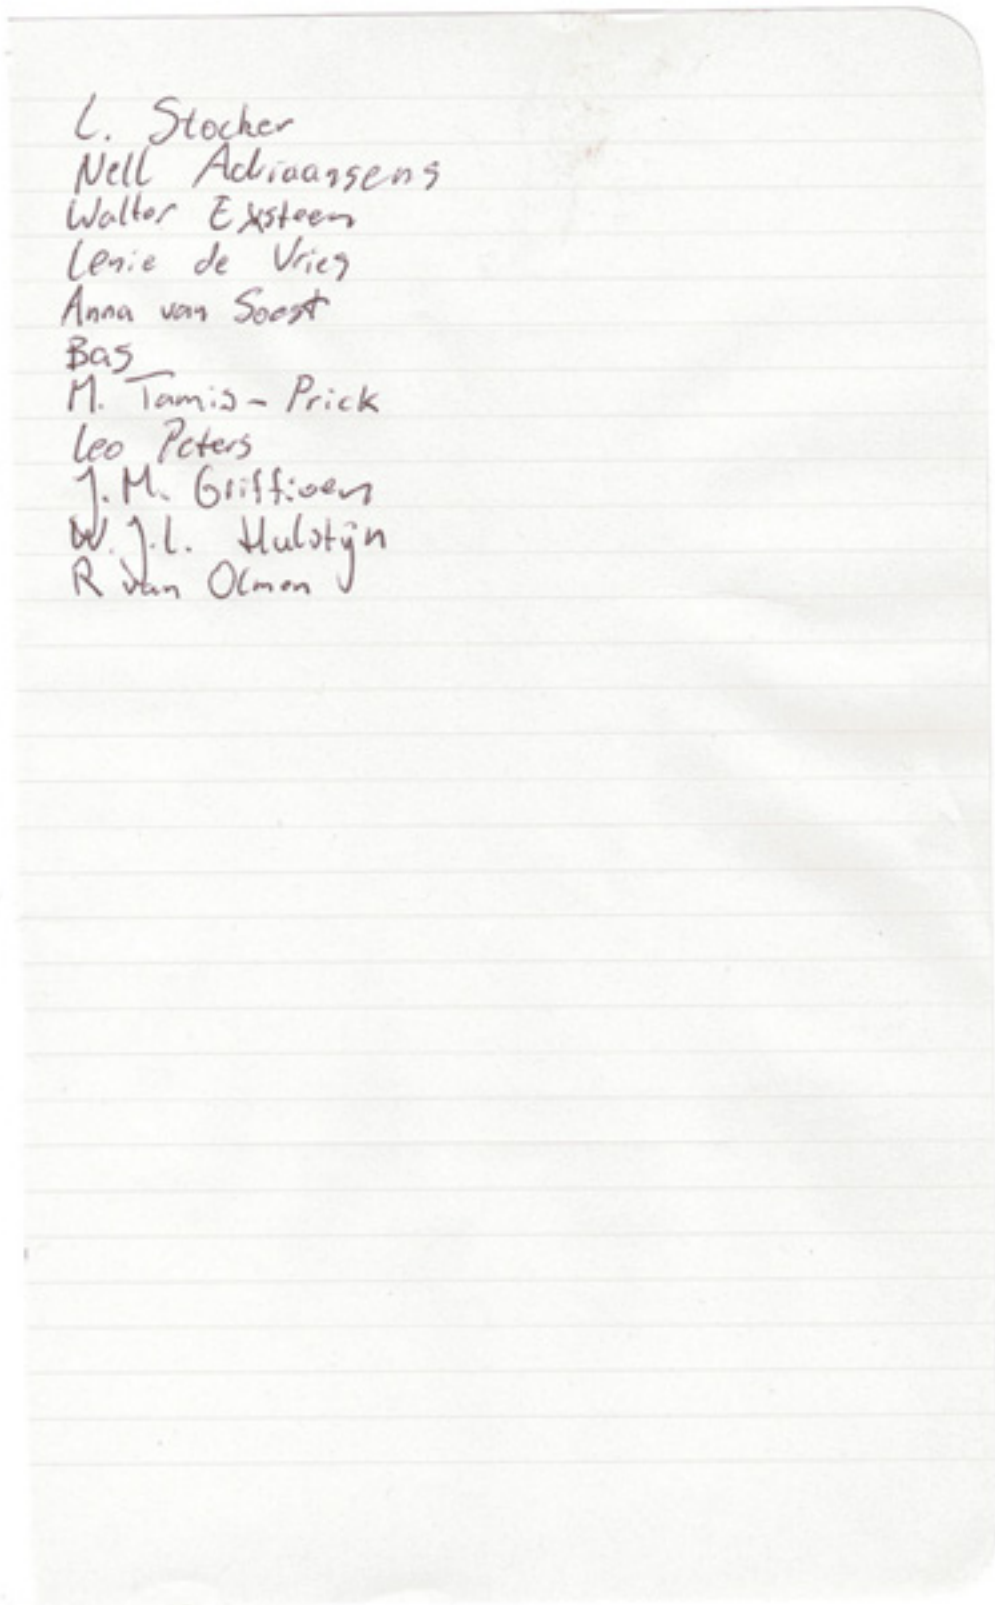 L. Stocker
Nell Adriaansens
Walter Exsteen
Lenie de Vries
Anna van Soest
Bas
M. Tamis - Prick
Leo Peters
J.M. Griffioen
W.J.L. Hulstijn
R van Olmen